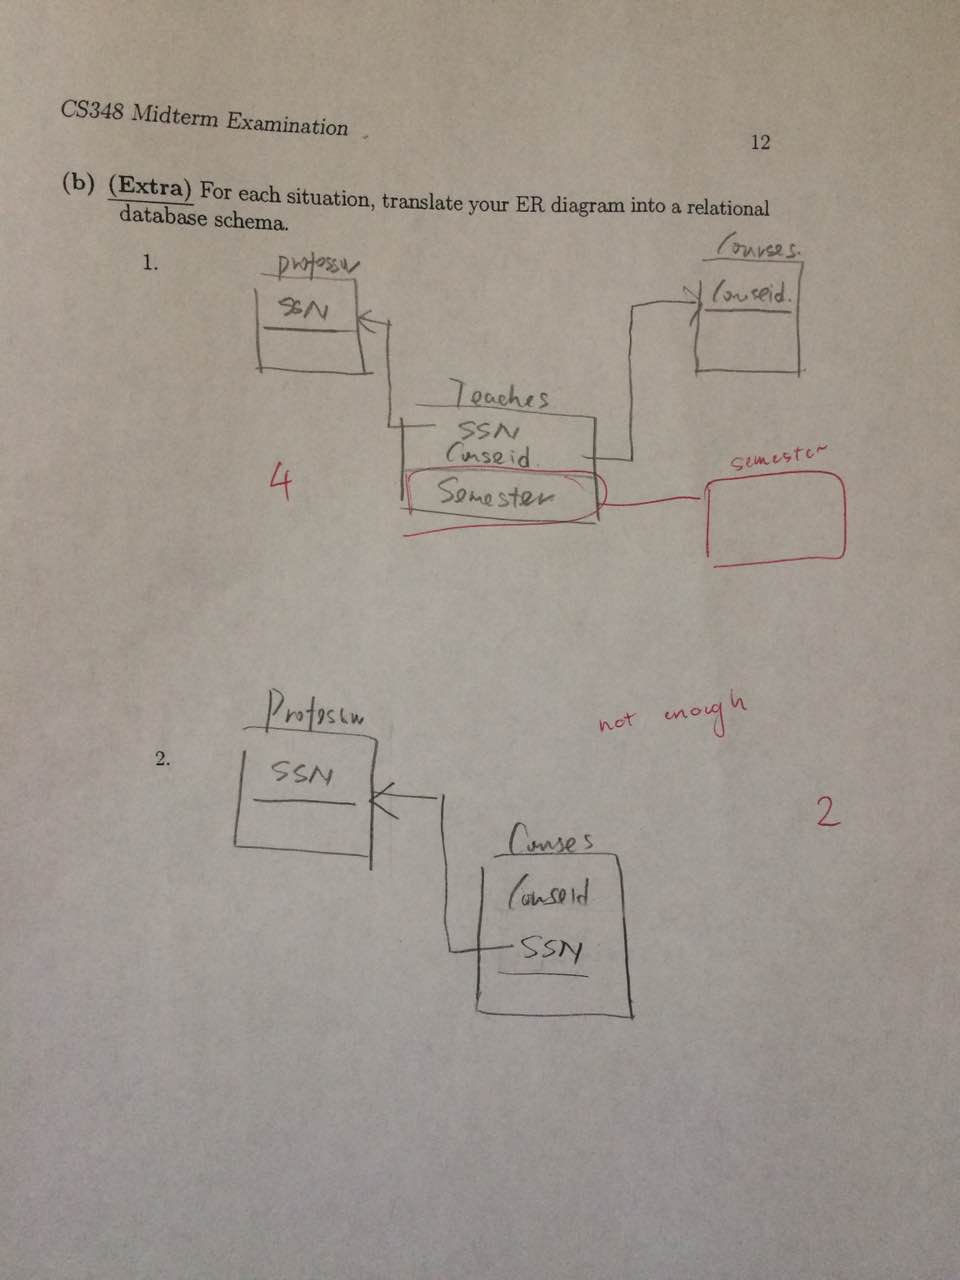 CS348 Midterm Examination
12
(b) (Extra) For each situation, translate your ER diagram into a relational
database schema.
1.
Professor
SSN
Courses.
Courseid.
Teaches
SSN
Courseid.
Semester
semester
4
2.
Professor
SSN
not enough
2
Courses
Courseid
SSN